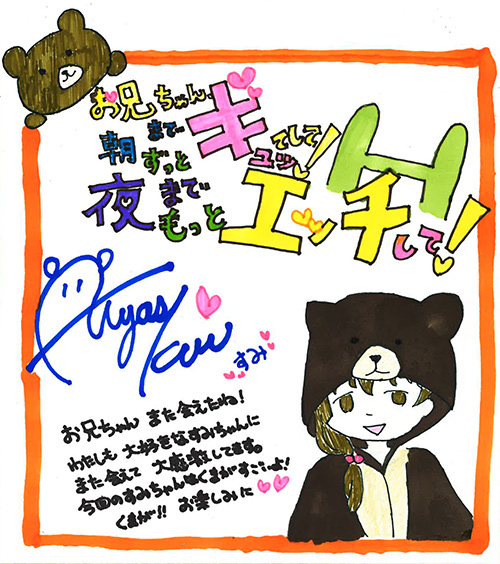 お兄ちゃん、
朝まで
ずっと
ギュッてして!
夜まで
もっと
H
エッチして!
すみ
お兄ちゃん また会えたね!
わたしも 大好きなすみちゃんに
また会えて 大感激してます。
今回のすみちゃんはくまがすごいよ!
くまが!! お楽しみに